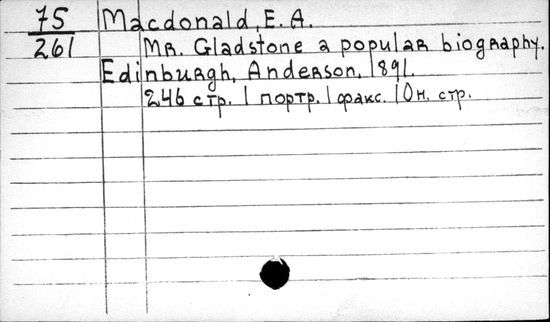 75 Macdonald, E. A.
261 Mr. Gladstone a popular biography.
Edinburgh, Anderson, 1891.
246 стр. 1 портр. 1 факс. 10н. стр.